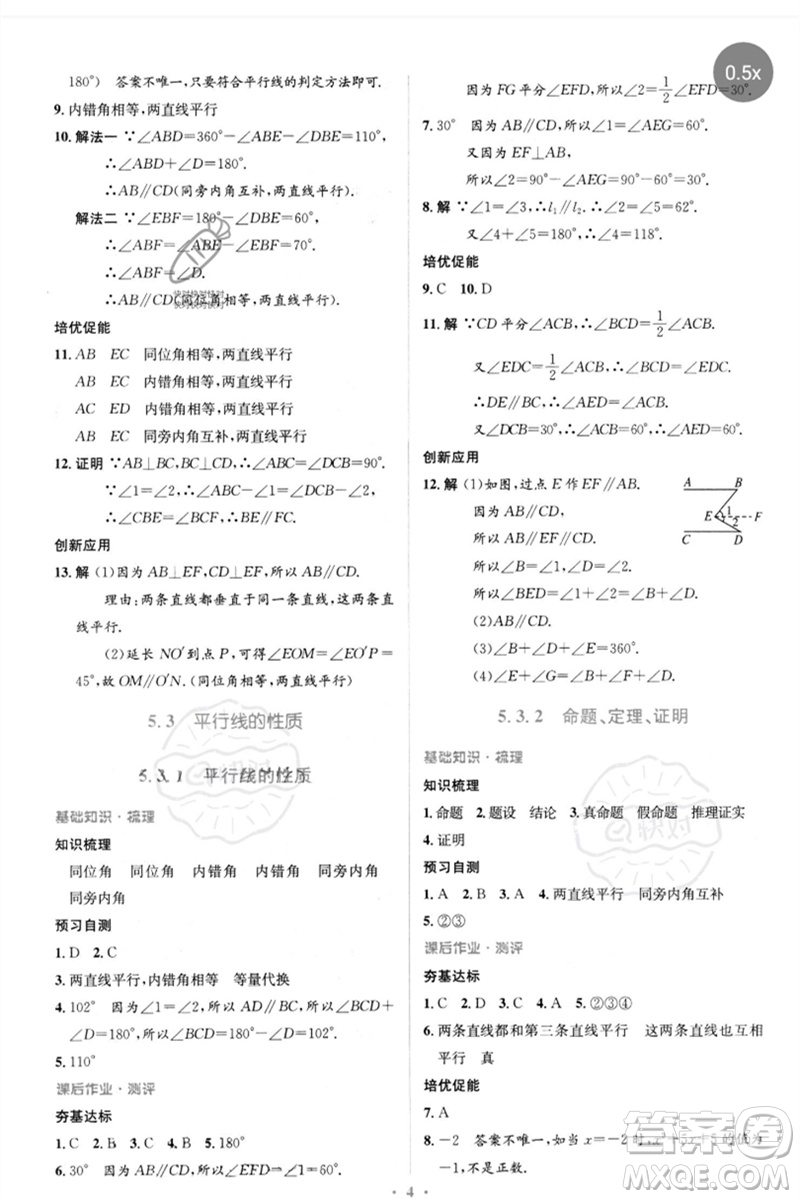 180°) 答案不唯一,只要符合平行线的判定方法即可.
9. 内错角相等,两直线平行
10. 解法一 ∵∠ABD=360°−∠ABE−∠DBE=110°,
∴∠ABD+∠D=180°.
∴AB∥CD(同旁内角互补,两直线平行).
解法二 ∵∠EBF=180°−∠DBE=60°,
∴∠ABF=∠ABE−∠EBF=70°.
∴∠ABF=∠D.
∴AB∥CD(同位角相等,两直线平行).
培优促能
11. AB EC 同位角相等,两直线平行
AB EC 内错角相等,两直线平行
AC ED 内错角相等,两直线平行
AB EC 同旁内角互补,两直线平行
12. 证明 ∵AB⊥BC,BC⊥CD,∴∠ABC=∠DCB=90°.
又∵∠1=∠2,∴∠ABC−∠1=∠DCB−∠2,
∴∠CBE=∠BCF,∴BE∥FC.
创新应用
13. 解 (1)因为AB⊥EF,CD⊥EF,所以AB∥CD.
理由:两条直线都垂直于同一条直线,这两条直线平行.
(2)延长NO′到点P,可得∠EOM=∠EO′P=
45°,故OM∥O′N.(同位角相等,两直线平行)
5.3 平行线的性质
5.3.1 平行线的性质
基础知识·梳理
知识梳理
同位角 同位角 内错角 内错角 同旁内角
同旁内角
预习自测
1. D 2. C
3. 两直线平行,内错角相等 等量代换
4. 102° 因为∠1=∠2,所以AD∥BC,所以∠BCD+
∠D=180°,所以∠BCD=180°−∠D=102°.
5. 110°
课后作业·测评
夯基达标
1. C 2. C 3. B 4. B 5. 180°
6. 30° 因为AB∥CD,所以∠EFD=∠1=60°.
因为FG平分∠EFD,所以∠2=1/2∠EFD=30°.
7. 30° 因为AB∥CD,所以∠1=∠AEG=60°.
又因为EF⊥AB,
所以∠2=90°−∠AEG=90°−60°=30°.
8. 解 ∵∠1=∠3,∴l₁∥l₂.∴∠2=∠5=62°.
又∵∠4+∠5=180°,∴∠4=118°.
培优促能
9. C 10. D
11. 解 ∵CD平分∠ACB,∴∠BCD=1/2∠ACB.
又∠EDC=1/2∠ACB,∴∠BCD=∠EDC.
∴DE∥BC.∴∠AED=∠ACB.
又∠DCB=30°,∴∠ACB=60°,∴∠AED=60°.
创新应用
12. 解 (1)如图,过点E作EF∥AB.
因为AB∥CD,
所以EF∥CD.
所以∠B=∠1,∠2=∠D.
又因为∠BED=∠1+∠2,
所以∠BED=∠B+∠D.
A B
E 1 2 F
C D
(2)AB∥CD.
(3)∠B+∠D+∠E=360°.
(4)∠B+∠F+∠D=∠E+∠G.
5.3.2 命题、定理、证明
基础知识·梳理
知识梳理
1. 命题 2. 题设 结论 3. 真命题 假命题 推理证实
4. 证明
预习自测
1. A 2. B 3. A 4. 两直线平行 同旁内角互补
5. ②③
课后作业·测评
夯基达标
1. C 2. C 3. D 4. A 5. ②③④
6. 两条直线都和第三条直线平行 这两条直线也互相
平行 真
培优促能
7. A
8. −2 答案不唯一,如当x=−2时,x²+5x+5的值为
−1,不是正数.
0.5x
快对
快对
答案圈
MXQE.COM
4